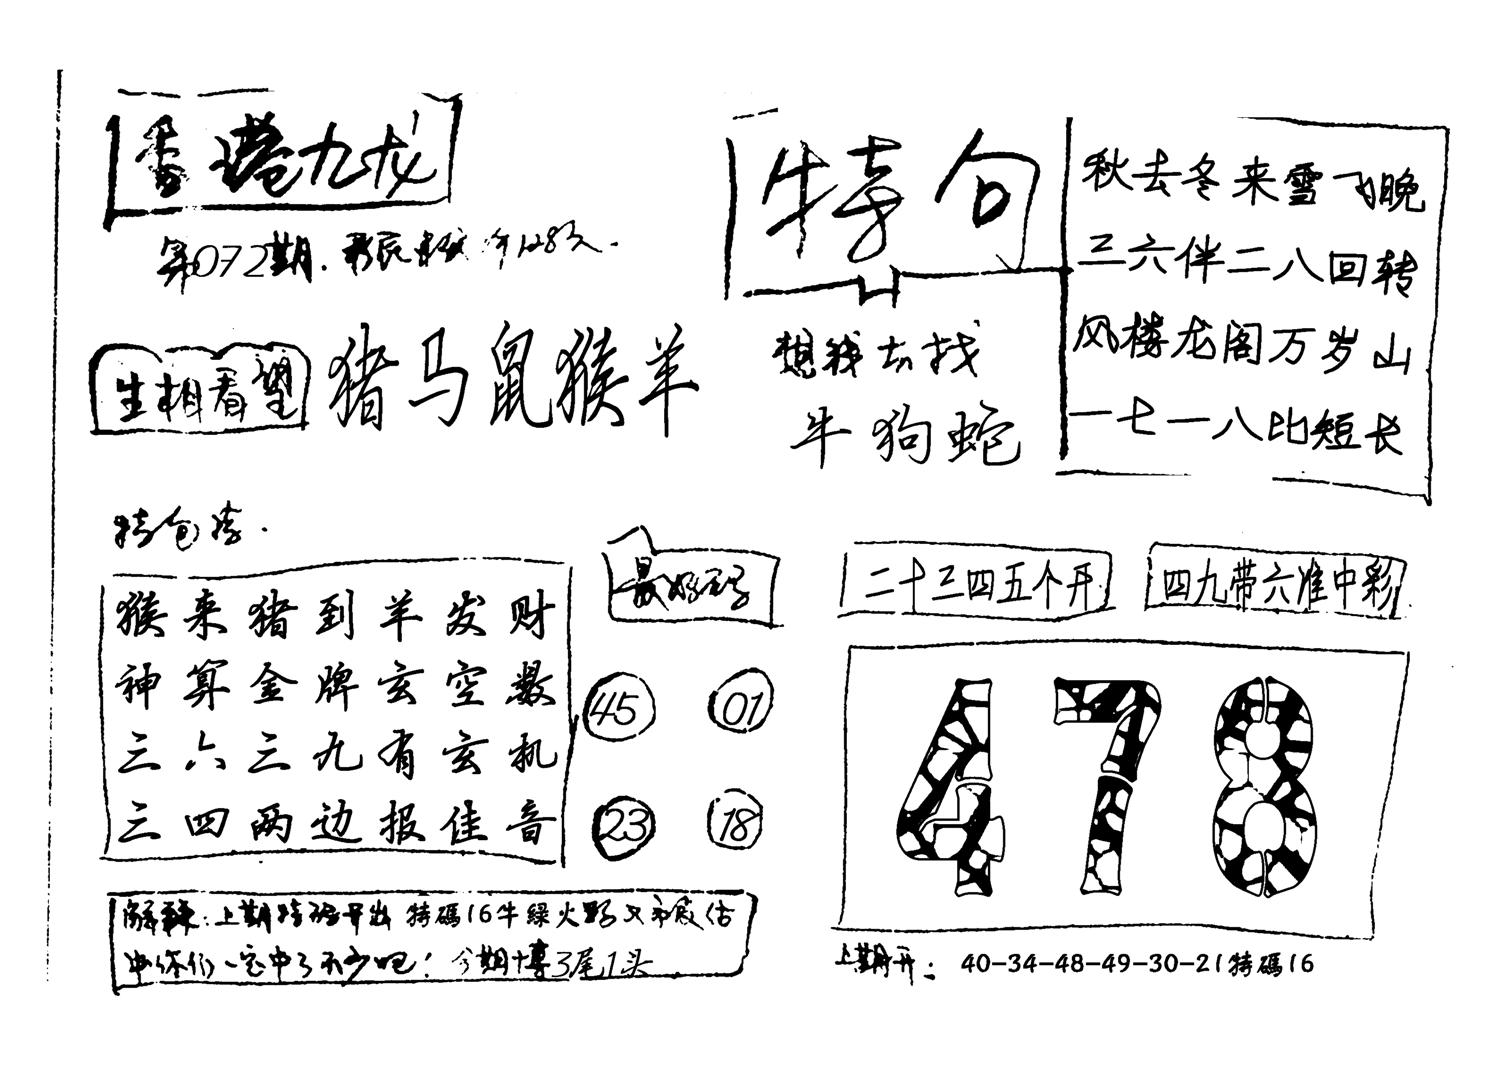 香港九龙
第072期.
生相看望
猪马鼠猴羊
特句
想我去找
牛狗蛇
秋去冬来雪飞晚
三六伴二八回转
风楼龙阁万岁山
一七一八比短长
猴来猪到羊发财
神算金牌玄空数
三六三九有玄机
三四两边报佳音
最好码
45 01
23 18
二十三四五个开
四九带六准中彩
478
上期特码开出特碼16牛緑火
你们一定中了不少吧！今期博3尾1头
上期开：40-34-48-49-30-21特碼16